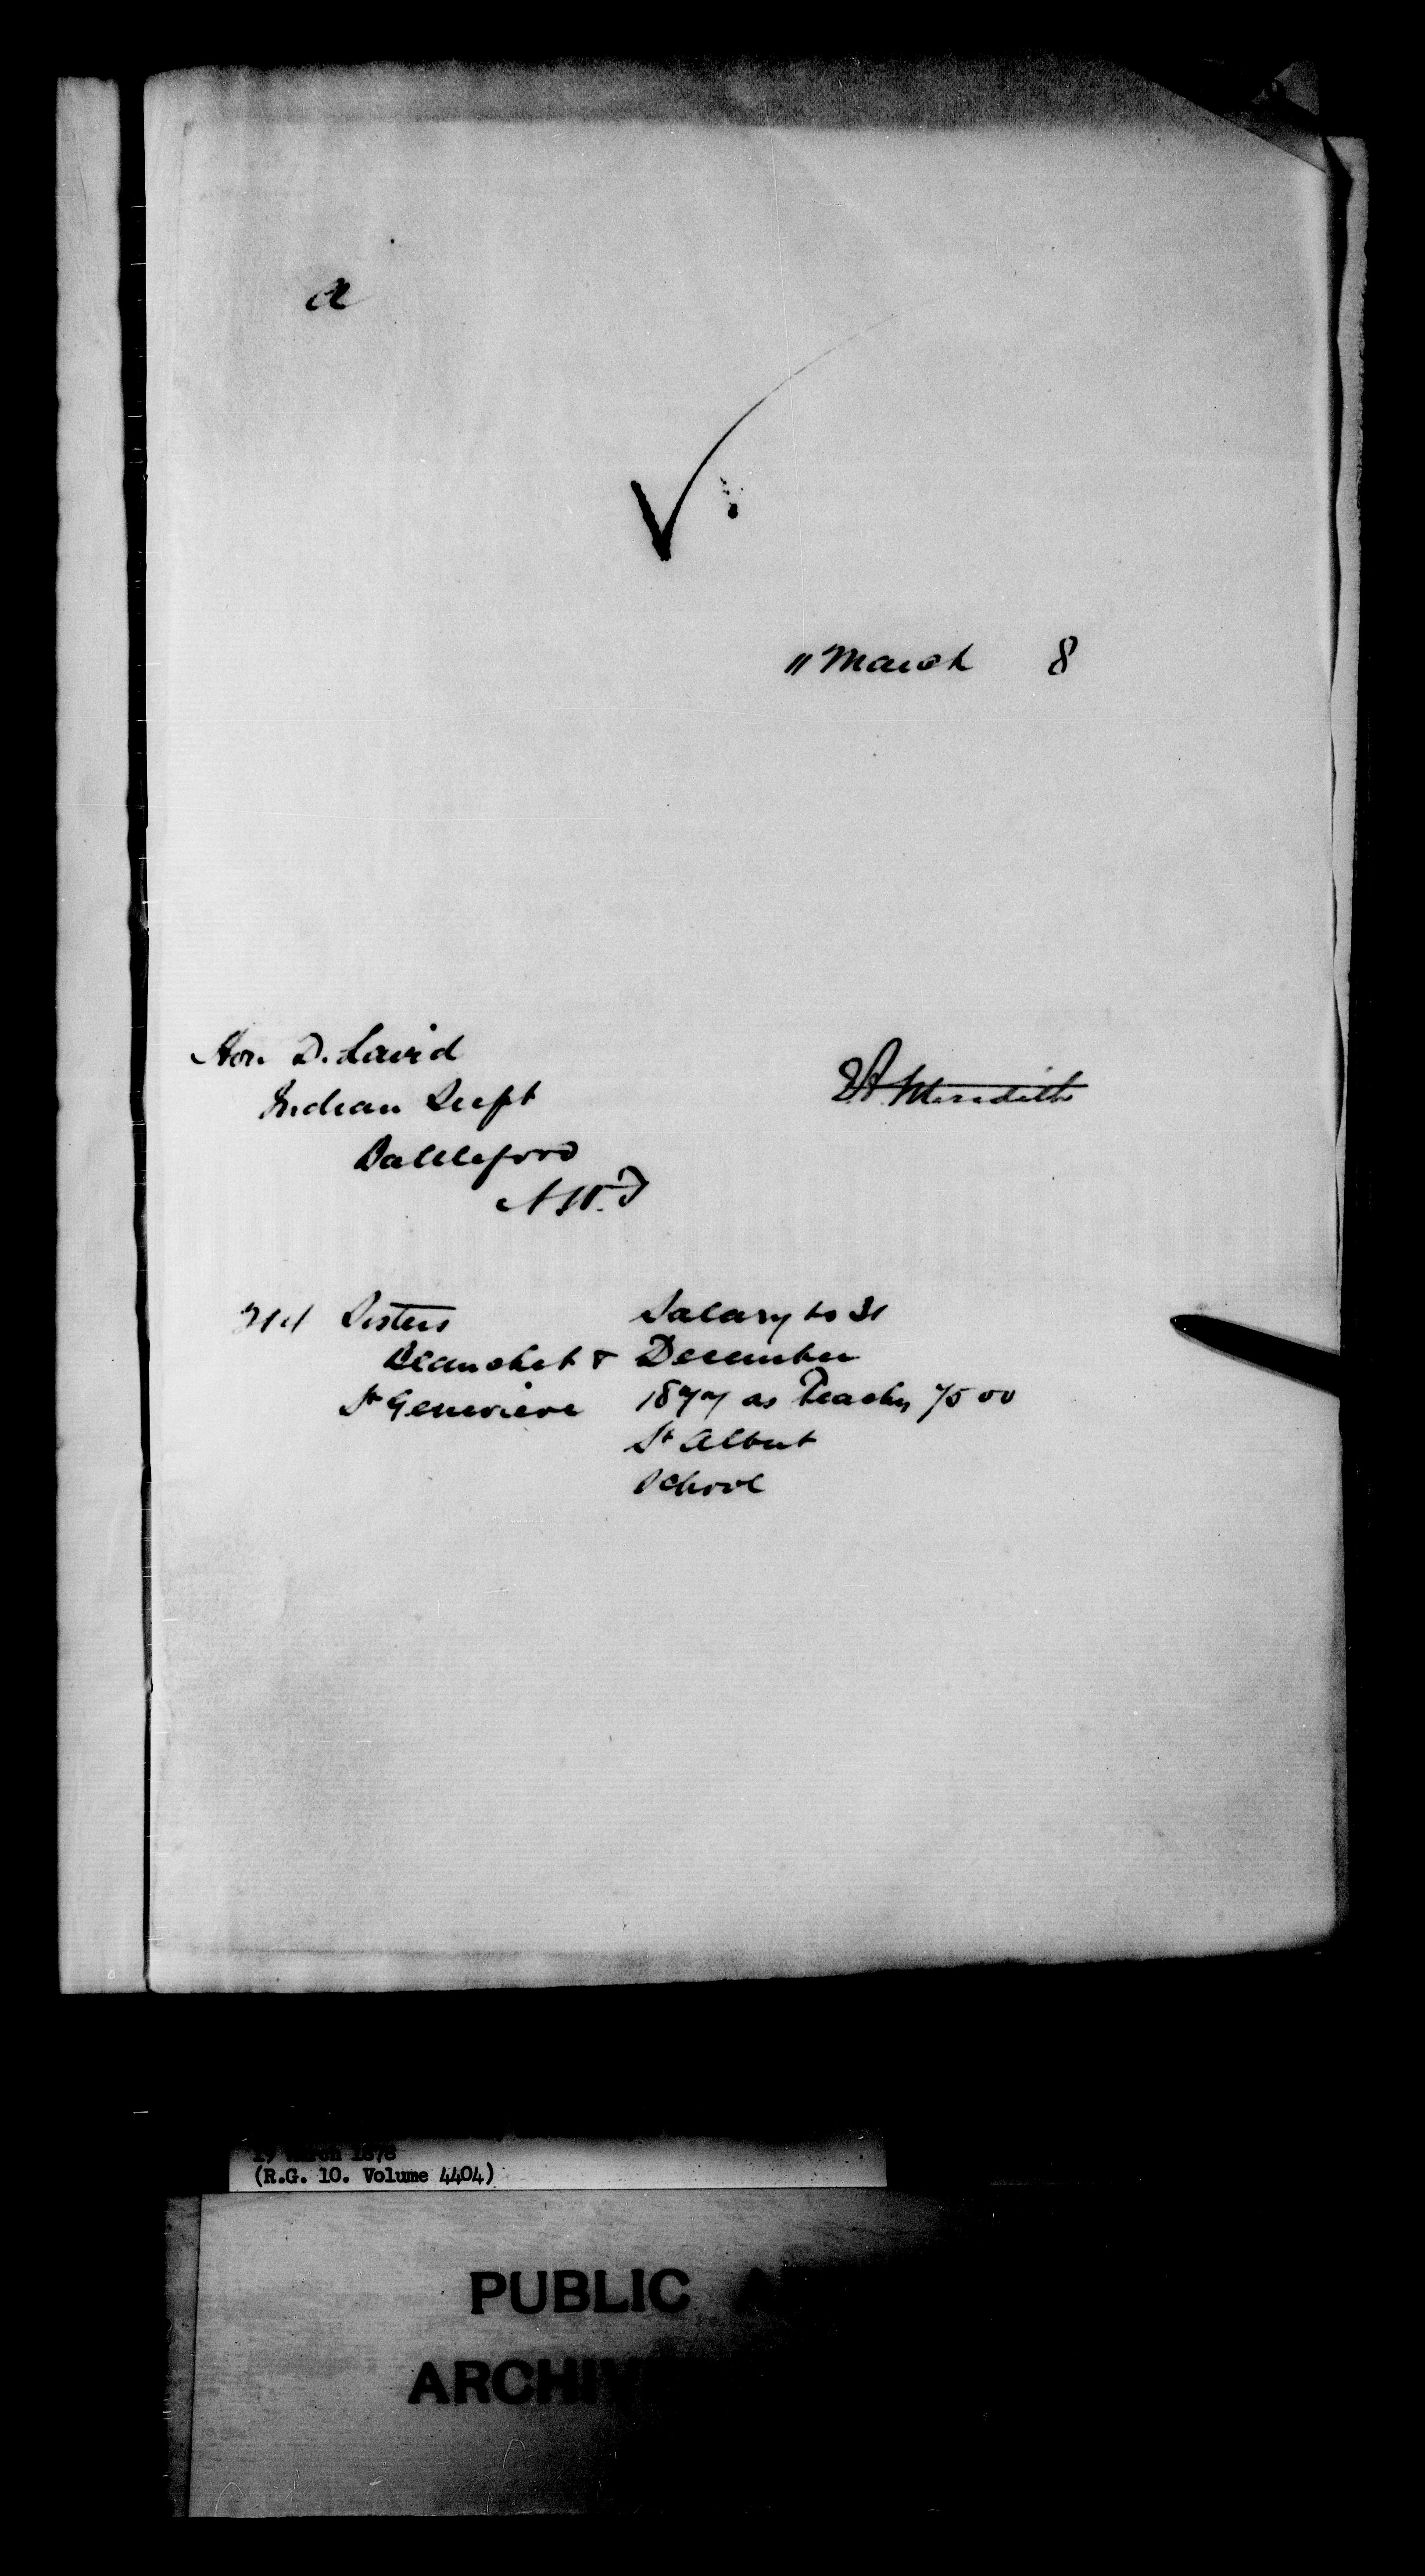 a
11 March 8
Hon. D. Laird
Indian Supt
Battleford
N.W.T
E A Meredith
Sisters
Blanchet &
St Genevieve
Salary to 31
December
1877 as Teachers 75 00
St Albert
School
19 March 1878
(R.G. 10. Volume 4404)
PUBLIC
ARCHIV